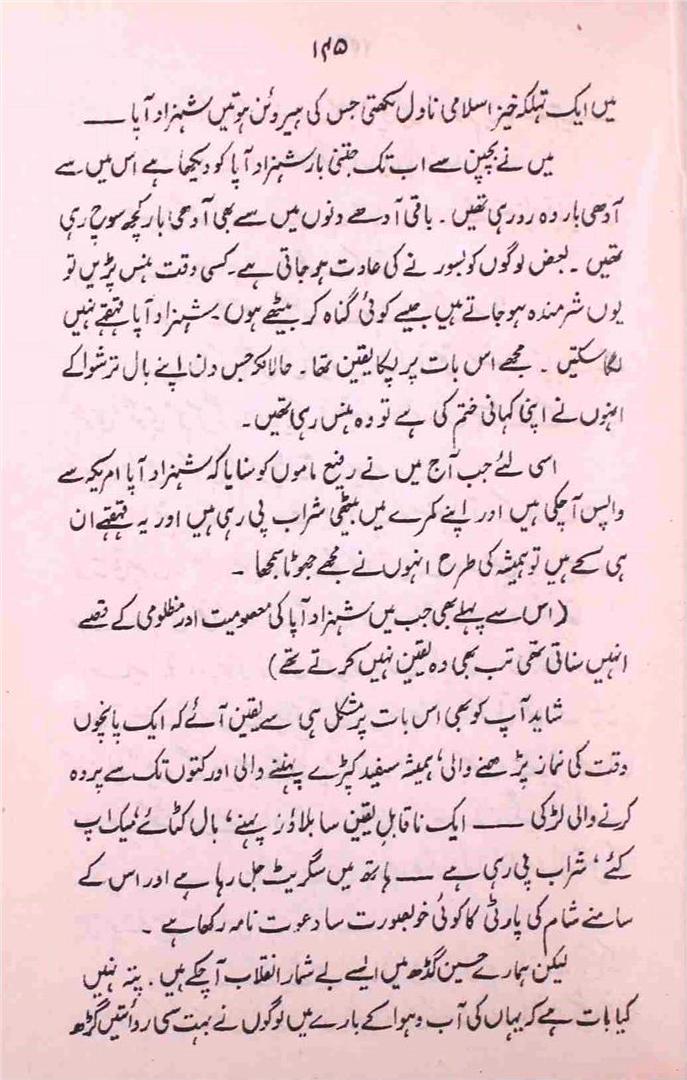 ۱۴۵
میں ایک تہلکہ خیز اسلامی ناول لکھتی جس کی ہیروئن ہوتیں شہزاد آپا ——
میں نے بچپن سے اب تک جتنی بار شہزاد آپا کو دیکھا ہے اس میں سے
آدھی بار وہ رو رہی تھیں۔ باقی آدھے دنوں میں سے بھی آدھی بار کچھ سوچ رہی
تھیں۔ بعض لوگوں کو بسورنے کی عادت ہو جاتی ہے۔ کسی وقت ہنس پڑیں تو
یوں شرمندہ ہو جاتے ہیں جیسے کوئی گناہ کر بیٹھے ہوں۔ شہزاد آپا قہقہے نہیں
لگا سکتیں۔ مجھے اس بات پر پکا یقین تھا۔ حالانکہ جس دن اپنے بال ترشوا کے
انہوں نے اپنی کہانی ختم کی ہے تو وہ ہنس رہی تھیں۔
اسی لئے جب آج میں نے رفیع ماموں کو سنایا کہ شہزاد آپا امریکہ سے
واپس آ چکی ہیں اور اپنے کمرے میں بیٹھی شراب پی رہی ہیں اور یہ قہقہے ان
ہی کے ہیں تو ہمیشہ کی طرح انہوں نے مجھے جھوٹا سمجھا۔
(اس سے پہلے بھی جب میں شہزاد آپا کی معصومیت اور مظلومی کے قصے
انہیں سناتی تھی تب بھی وہ یقین نہیں کرتے تھے)
شاید آپ کو بھی اس بات پر مشکل ہی سے یقین آئے کہ ایک پانچوں
وقت کی نماز پڑھنے والی، ہمیشہ سفید کپڑے پہننے والی اور کتوں تک سے پردہ
کرنے والی لڑکی —— ایک ناقابلِ یقین سا بلاؤز پہنے، بال کٹائے، میک اپ
کئے، شراب پی رہی ہے —— ہاتھ میں سگریٹ جل رہا ہے اور اس کے
سامنے شام کی پارٹی کا کوئی خوبصورت سا دعوت نامہ رکھا ہے۔
لیکن ہمارے حسین گڈھ میں ایسے بے شمار انقلاب آ چکے ہیں۔ پتہ نہیں
کیا بات ہے کہ یہاں کی آب و ہوا کے بارے میں لوگوں نے بہت سی روائتیں گڑھ